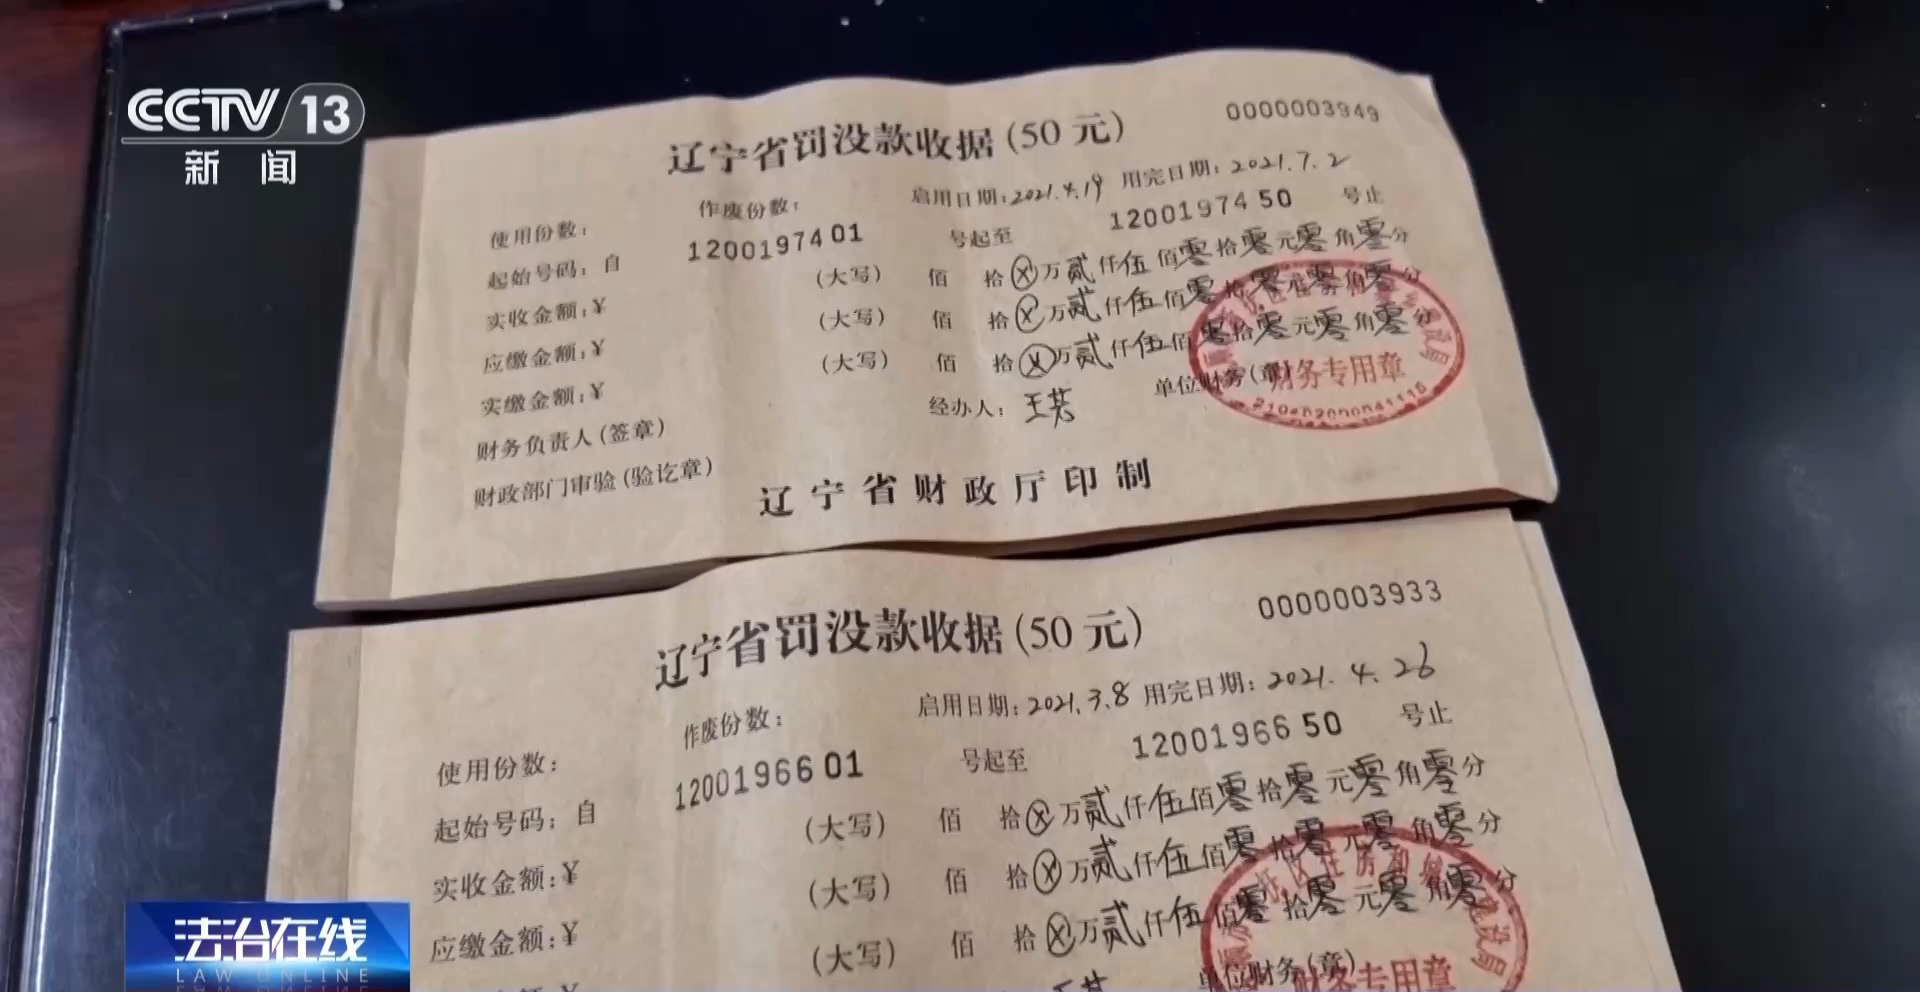 CCTV 13
新闻
辽宁省罚没款收据(50元)
0000003949
启用日期:2021.4.19 用完日期:2021.7.2
使用份数: 作废份数:
起始号码:自 1200197401 号起至 1200197450 号止
实收金额:¥ (大写) 佰 拾ⓧ万贰仟伍佰零拾零元零角零分
应缴金额:¥ (大写) 佰 拾ⓧ万贰仟伍佰零拾零元零角零分
实缴金额:¥ (大写) 佰 拾ⓧ万贰仟伍佰零拾零元零角零分
财务负责人(签章) 经办人: 单位财务(章)
财政部门审验(验讫章)
财务专用章
辽宁省财政厅印制
辽宁省罚没款收据(50元)
0000003933
启用日期:2021.3.8 用完日期:2021.4.26
使用份数: 作废份数:
起始号码:自 1200196601 号起至 1200196650 号止
实收金额:¥ (大写) 佰 拾ⓧ万贰仟伍佰零拾零元零角零分
应缴金额:¥ (大写) 佰 拾ⓧ万贰仟伍佰零拾零元零角零分
(大写) 佰 拾ⓧ万贰仟伍佰零拾零元零角零分
单位财务(章)
财务专用章
法治在线
LAW ONLINE